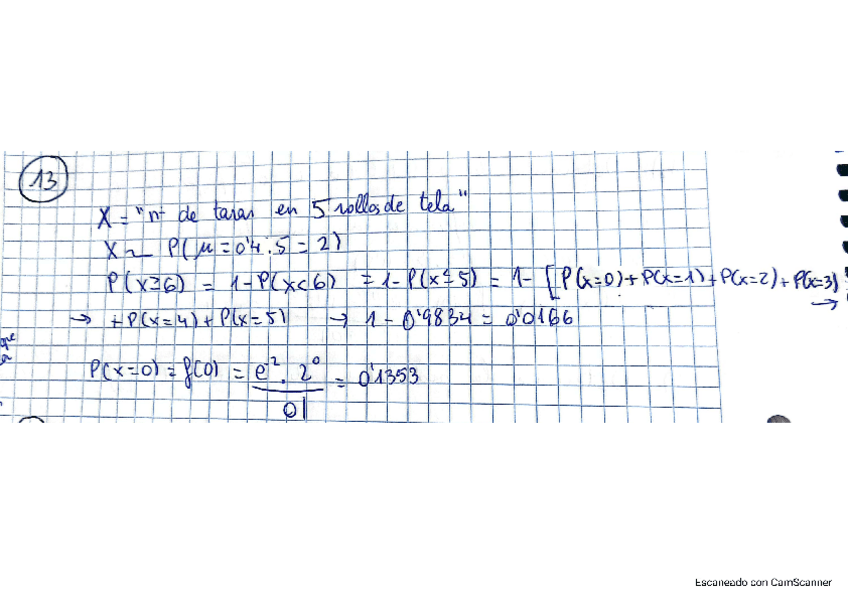 13
X = "nº de taras en 5 rollos de tela"
X ~ P(μ = 0'4 · 5 = 2)
P(x≥6) = 1 - P(x<6) = 1 - P(x≤5) = 1 - [P(x=0) + P(x=1) + P(x=2) + P(x=3)
→ + P(x=4) + P(x=5) → 1 - 0'9834 = 0'0166
P(x=0) = f(0) = e⁻² · 2⁰ / 0! = 0'1353
Escaneado con CamScanner